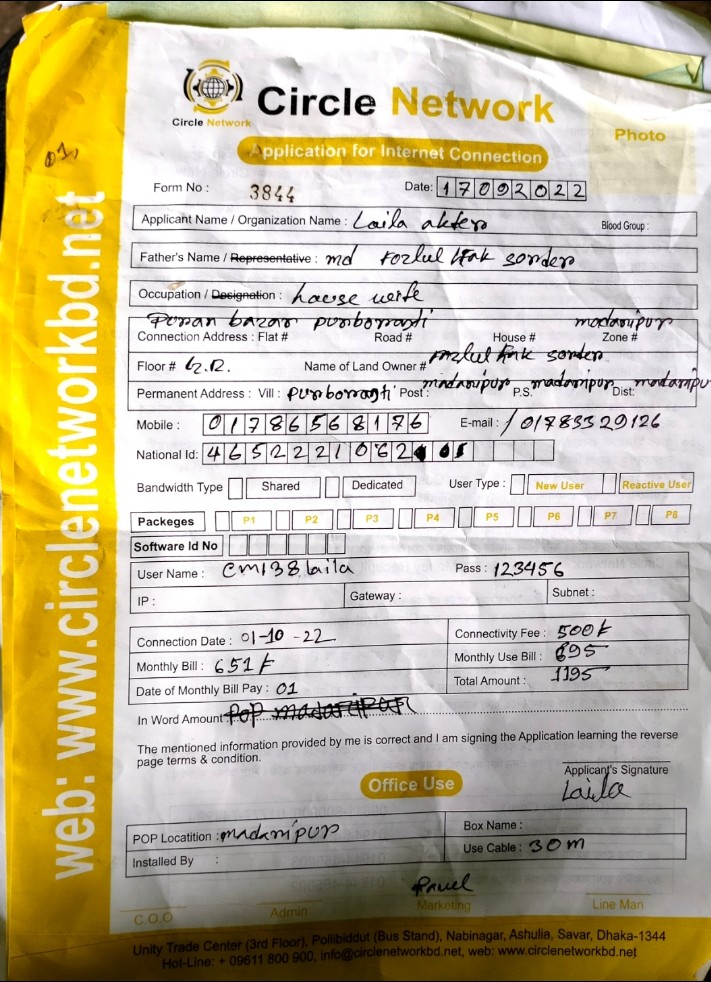 Circle Network
Circle Network
Photo
Application for Internet Connection
01,
Form No : 3844 Date: 17092022
Applicant Name / Organization Name : Laila akter Blood Group :
Father's Name / Representative : md fozlul Hak sorder
Occupation / Designation : house wife
Puran bazar puriborragti madaripur
Connection Address : Flat # Road # House # Zone #
Floor # G.R. Name of Land Owner # fozlul Hak sorder
Permanent Address : Vill : Puriborragti Post : madaripur P.S. madaripur Dist: madaripu
Mobile : 01786568176 E-mail : / 01783329126
National Id: 4652221062
Bandwidth Type Shared Dedicated User Type : New User Reactive User
Packeges P1 P2 P3 P4 P5 P6 P7 P8
Software Id No
User Name : cm138laila Pass : 123456
IP : Gateway : Subnet :
Connection Date : 01-10-22 Connectivity Fee : 500/-
Monthly Bill : 651/- Monthly Use Bill : 695
Date of Monthly Bill Pay : 01 Total Amount : 1195
In Word Amount POP madaripur
The mentioned information provided by me is correct and I am signing the Application learning the reverse
page terms & condition.
Applicant's Signature
Laila
Office Use
POP Locatition : madaripur Box Name :
Installed By : Use Cable : 30m
C.O.O Admin Marketing Line Man
Unity Trade Center (3rd Floor), Pollibiddut (Bus Stand), Nabinagar, Ashulia, Savar, Dhaka-1344
Hot-Line: + 09611 800 900, info@circlenetworkbd.net, web: www.circlenetworkbd.net
web: www.circlenetworkbd.net